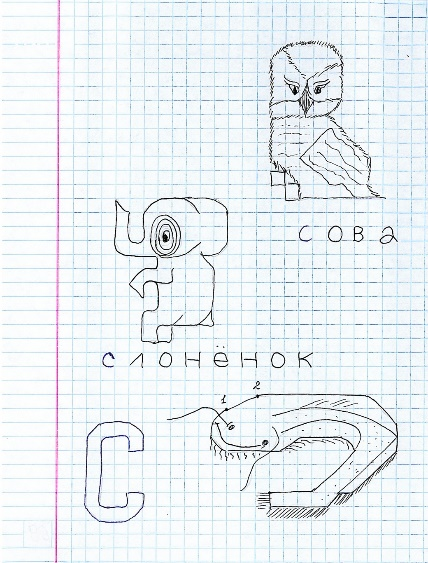 сова
слонёнок
1 2
С